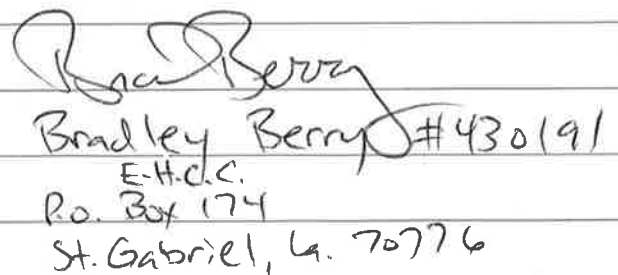 Brad Berry
Bradley Berry #430191
E.H.C.C.
P.O. Box 174
St. Gabriel, La. 70776